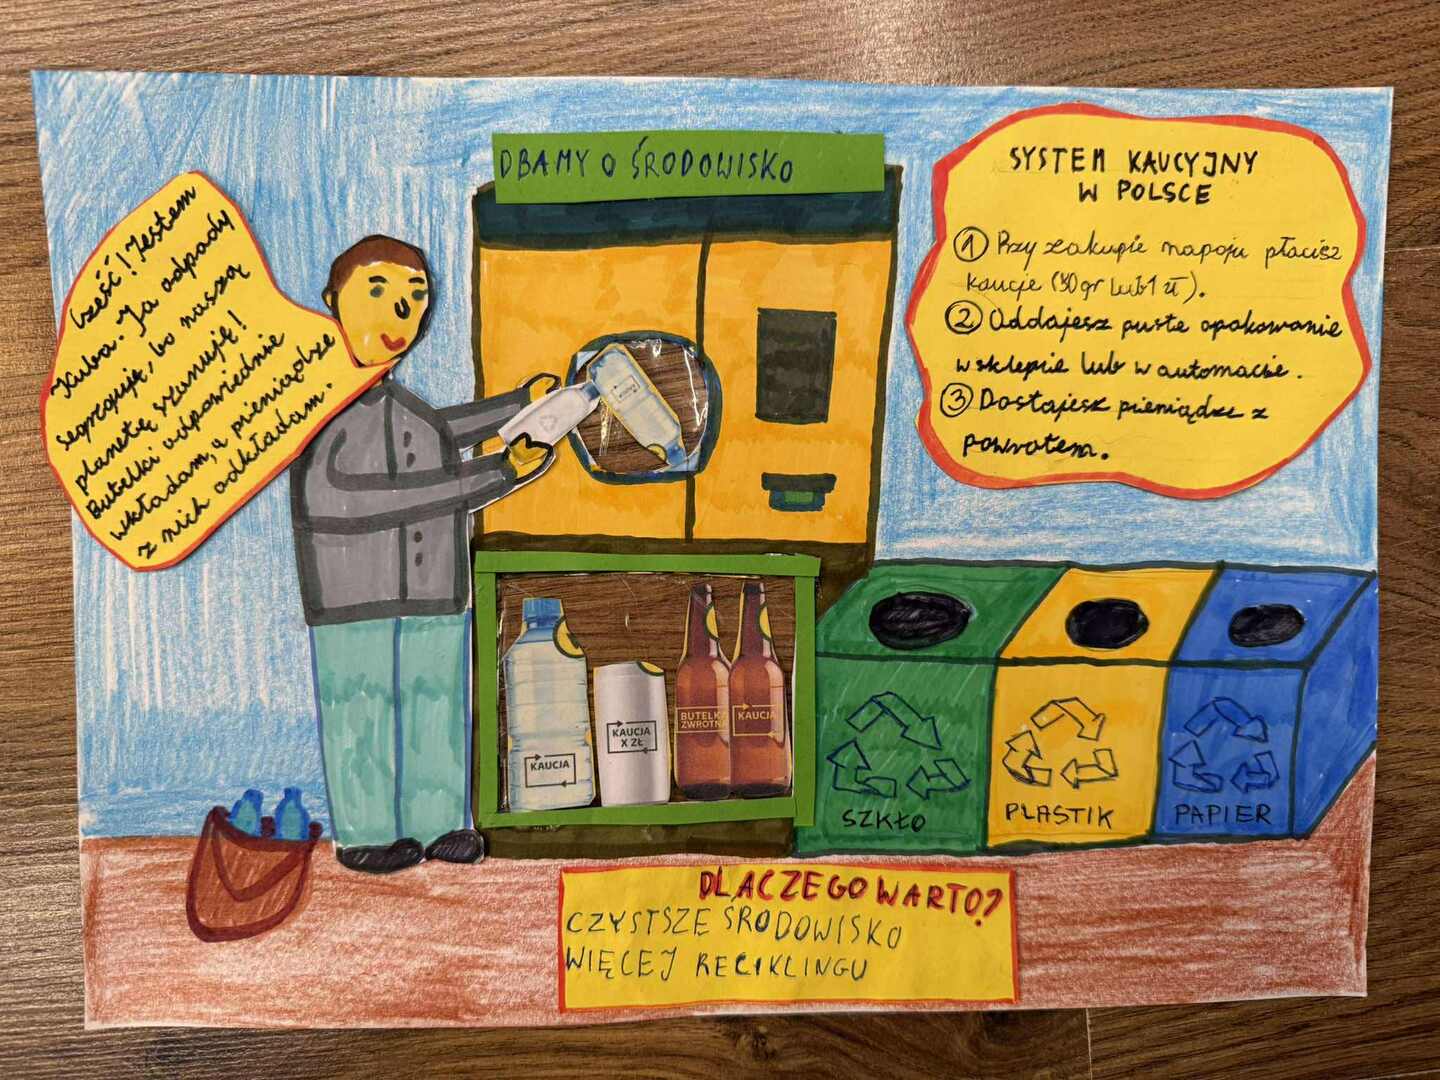 DBAMY O ŚRODOWISKO
Cześć! Jestem
Kuba. Ja odpady
segreguję, bo naszą
planetę szanuję!
Butelki odpowiednie
wkładam, a pieniądze
z nich odkładam.
SYSTEM KAUCYJNY
W POLSCE
1 Przy zakupie napoju płacisz
kaucje (50gr lub 1 zł).
2 Oddajesz puste opakowanie
w sklepie lub w automacie.
3 Dostajesz pieniądze z
powrotem.
KAUCJA
KAUCJA
X ZŁ
BUTELKA
ZWROTNA
KAUCJA
SZKŁO
PLASTIK
PAPIER
DLACZEGO WARTO?
CZYSTSZE ŚRODOWISKO
WIĘCEJ RECIKLINGU